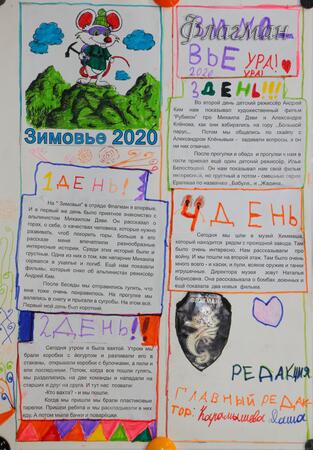 Зимовье 2020
1 ДЕНЬ!
На " Зимовье" в отряде Флагман я впервые.
И в первый же день было приятное знакомство с
альпинистом Михаилом Дзви. Он рассказал о
горах, о себе, о качествах человека, которые нужно
развивать, чтоб покорять горы. Больше в его
рассказе меня впечатлили разнообразные
интересные истории. Среди этих историй были и
грустные. Одна из них о том, как напарник Михаила
сорвался в ущелье и погиб. Ещё нам показали
фильмы, которые снял об альпинистах режиссёр
Андрей Ким.
После беседы мы отправились гулять, что
мне тоже очень понравилось. На прогулке мы
валялись в снегу и прыгали в сугробы. На этом всё.
Первый мой день был коротким.
2 ДЕНЬ!!
Сегодня утром я была вахтой. Утром мы
брали коробки с йогуртом и разливали его в
стаканы, открывали коробки с булочками, а пили и
ели последними. Потом, когда все пошли гулять,
мы разделились на две команды и нападали на
старших и друг на друга. И тут нас позвали:
-Кто вахта? - и мы пошли.
Когда мы пришли мы брали пластиковые
тарелки. Пришли ребята и мы раскладывали в них
еду. А потом мыли бачки и поварёшки.
Флагман
ЗИМО-
ВЬЕ УРА!
2020 УРА!
3 ДЕНЬ!!!
Во второй день детский режиссёр Андрей
Ким нам показывал художественный фильм
"Рубикон" про Михаила Дзви и Александра
Клёнова, как они взбирались на гору „Большой
парус„. Потом мы общались по скайпу с
Александром Клёновым - задавали вопросы, а он
ни них отвечал.
После прогулки и обеда к нам в
гости приехал ещё один детский режиссёр, Илья
Белостоцкий. Он нам показал свои фильмы
интересной, но грустный а потом - смешные
Ералаша по названию „Бабули„ и „Жадина„.
4 ДЕНЬ
Сегодня мы шли в музей Химмаша,
который находится рядом с проходной завода. Там
было очень интересно. Нам рассказывали про
войну. И мы пошли на второй этаж. Там было очень
много всего - и каски, и пули, всякое оружие и танки
игрушечные. Директора музея зовут Наталья
Борисовна. Она рассказывала о бомбах, военных и
ещё показала два новых фильма.
ФЛАГМАН
РЕДАКЦИЯ
ГЛАВНЫЙ РЕДАК-
ТОР: Карамышева Даша